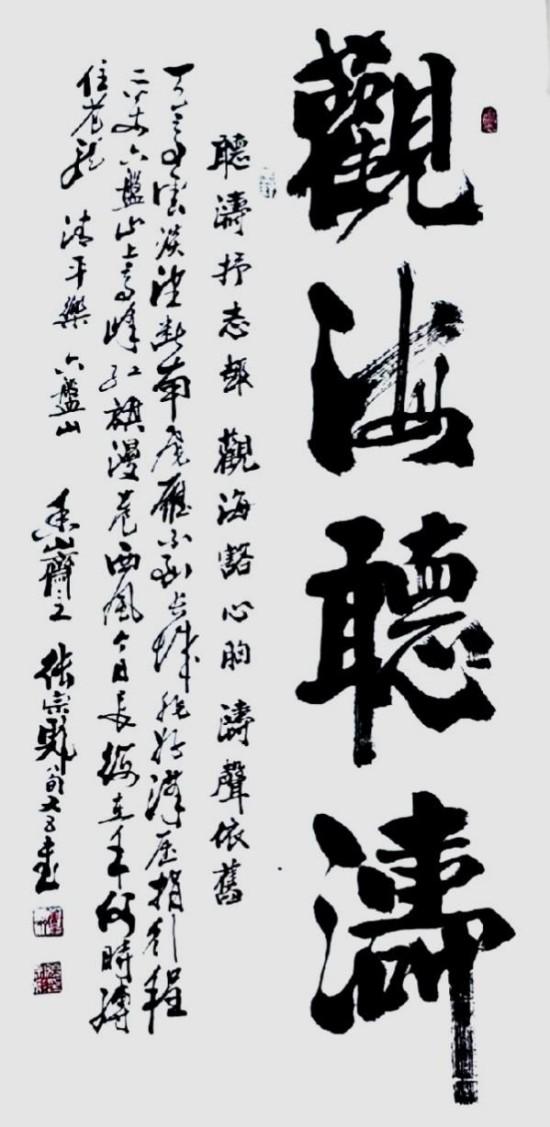 觀海聽濤
聽濤抒志趣 觀海豁心胸 濤聲依舊
天高雲淡望斷南飛雁不到長城非好漢屈指行程
二萬六盤山上高峰紅旗漫卷西風今日長纓在手何時縛
住蒼龍 清平樂 六盤山 齋主 張宗 八旬又 書